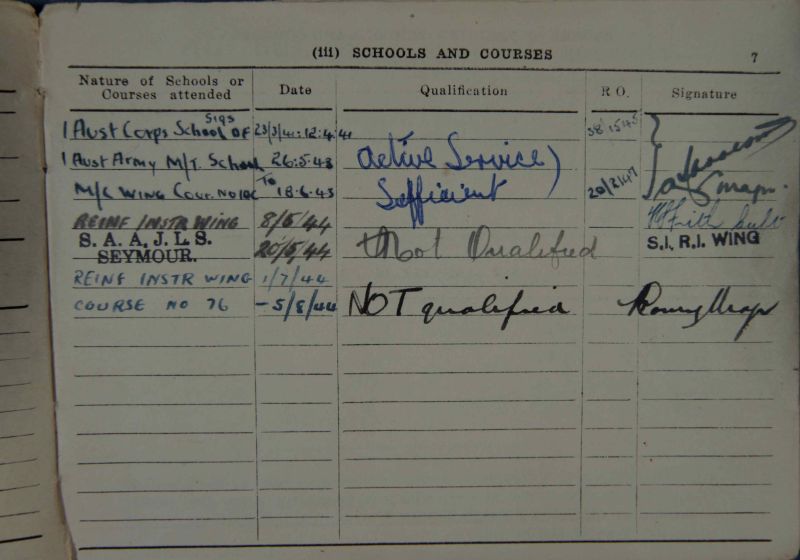 (iii) SCHOOLS AND COURSES 7
Nature of Schools or Courses attended Date Qualification R O. Signature
Sigs
1 Aust Corps School OF 23/3/41-12:4:41
1 Aust Army M/T. School 26:5:43 active Service)
M/C WING Cour. No TO 18.6.43 Sufficient
REINF INSTR WING 8/5/44
S. A. A. J. L. S. 20/5/44 Not Qualified S.I, R.I. WING
SEYMOUR.
REINF INSTR WING 1/7/44
COURSE NO 76 - 5/8/44 NOT qualified